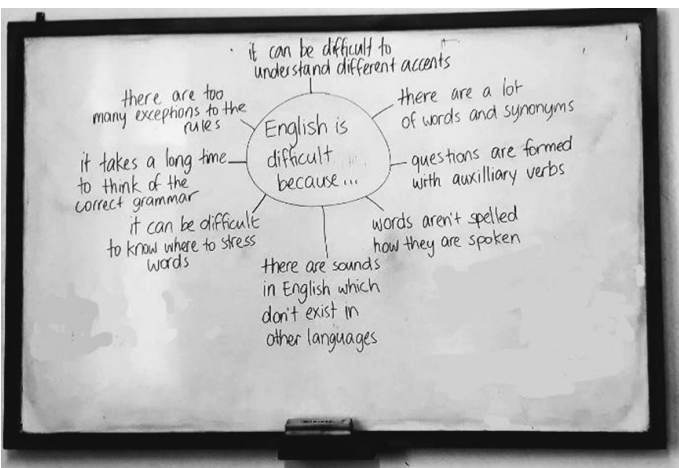 it can be difficult to
understand different accents
there are a lot
of words and synonyms
questions are formed
with auxilliary verbs
words aren't spelled
how they are spoken
there are sounds
in English which
don't exist in
other languages
it can be difficult
to know where to stress
words
it takes a long time
to think of the
correct grammar
there are too
many exceptions to the
rules
English is
difficult
because...